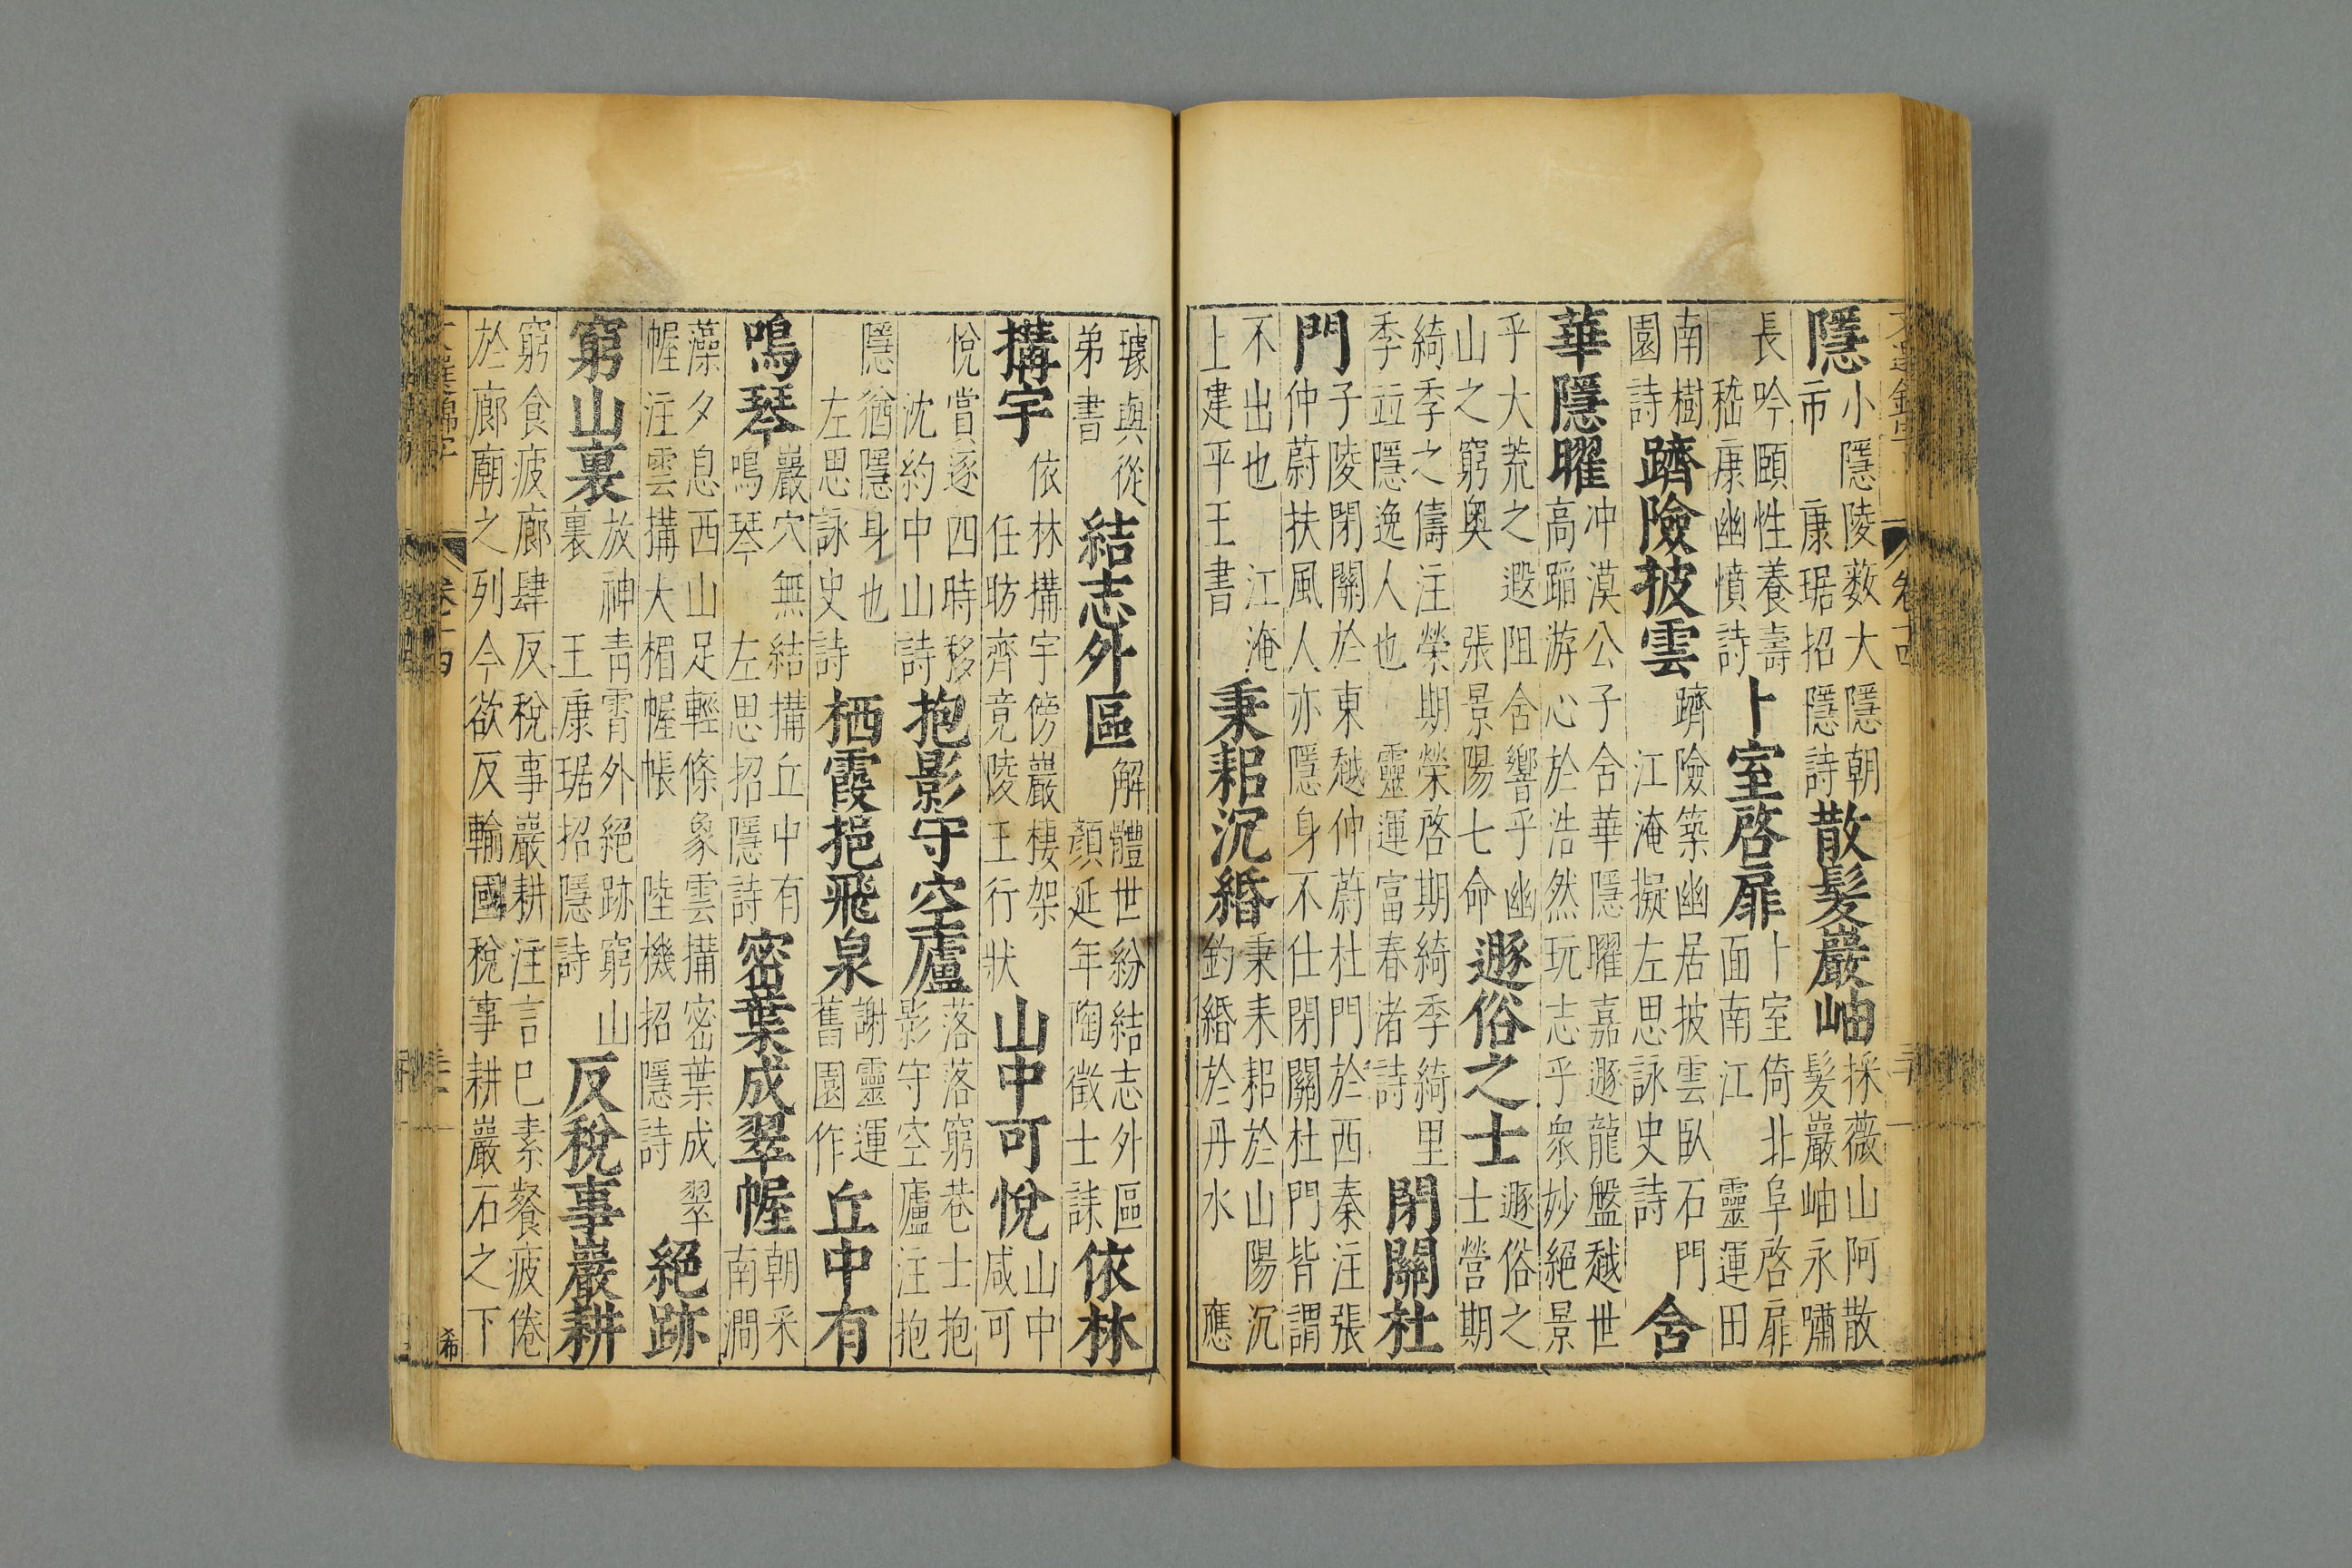 隱小隱陵薮大隱朝市 康琚招隱詩散髮巖岫採薇山阿散髮巖岫永嘯
長吟頤性養壽 嵇康幽憤詩卜室啓扉卜室倚北阜啓扉面南江 靈運田
南樹園詩躋險披雲躋險築幽居披雲臥石門 江淹擬左思詠史詩舍
華隱曜冲漠公子舍華隱曜嘉遯龍盤越世高蹈游心於浩然玩志乎衆妙絕景
乎大荒之遐阻舍響乎幽山之窮奧 張景陽七命遯俗之士遯俗之士營期
綺季之儔注榮期榮啓期綺季綺里季竝隱逸人也 靈運富春渚詩閉關杜
門子陵閉關於東越仲蔚杜門於西秦注張仲蔚扶風人亦隱身不仕閉關杜門皆謂
不出也 江淹上建平王書秉耜沉緡秉耒耜於山陽沉釣緡於丹水 應
璩與從弟書結志外區解體世紛結志外區 顏延年陶徵士誄依林
搆宇依林搆宇傍巖棲架 任昉齊竟陵王行狀山中可悅山中咸可
悅賞逐四時移 沈約中山詩抱影守空廬落落窮巷士抱影守空廬注抱
隱猶隱身也 左思詠史詩栖霞挹飛泉謝靈運舊園作丘中有
鳴琴巖穴無結搆丘中有鳴琴 左思招隱詩密葉成翠幄朝采南澗
藻夕息西山足輕條象雲搆密葉成翠幄注雲搆大楣幄帳 陸機招隱詩絕跡
窮山裏放神青霄外絕跡窮山裏 王康琚招隱詩反稅事巖耕
窮食疲廊肆反稅事巖耕注言巳素餐疲倦於廊廟之列今欲反輸國稅事耕巖石之下
卷十四
希